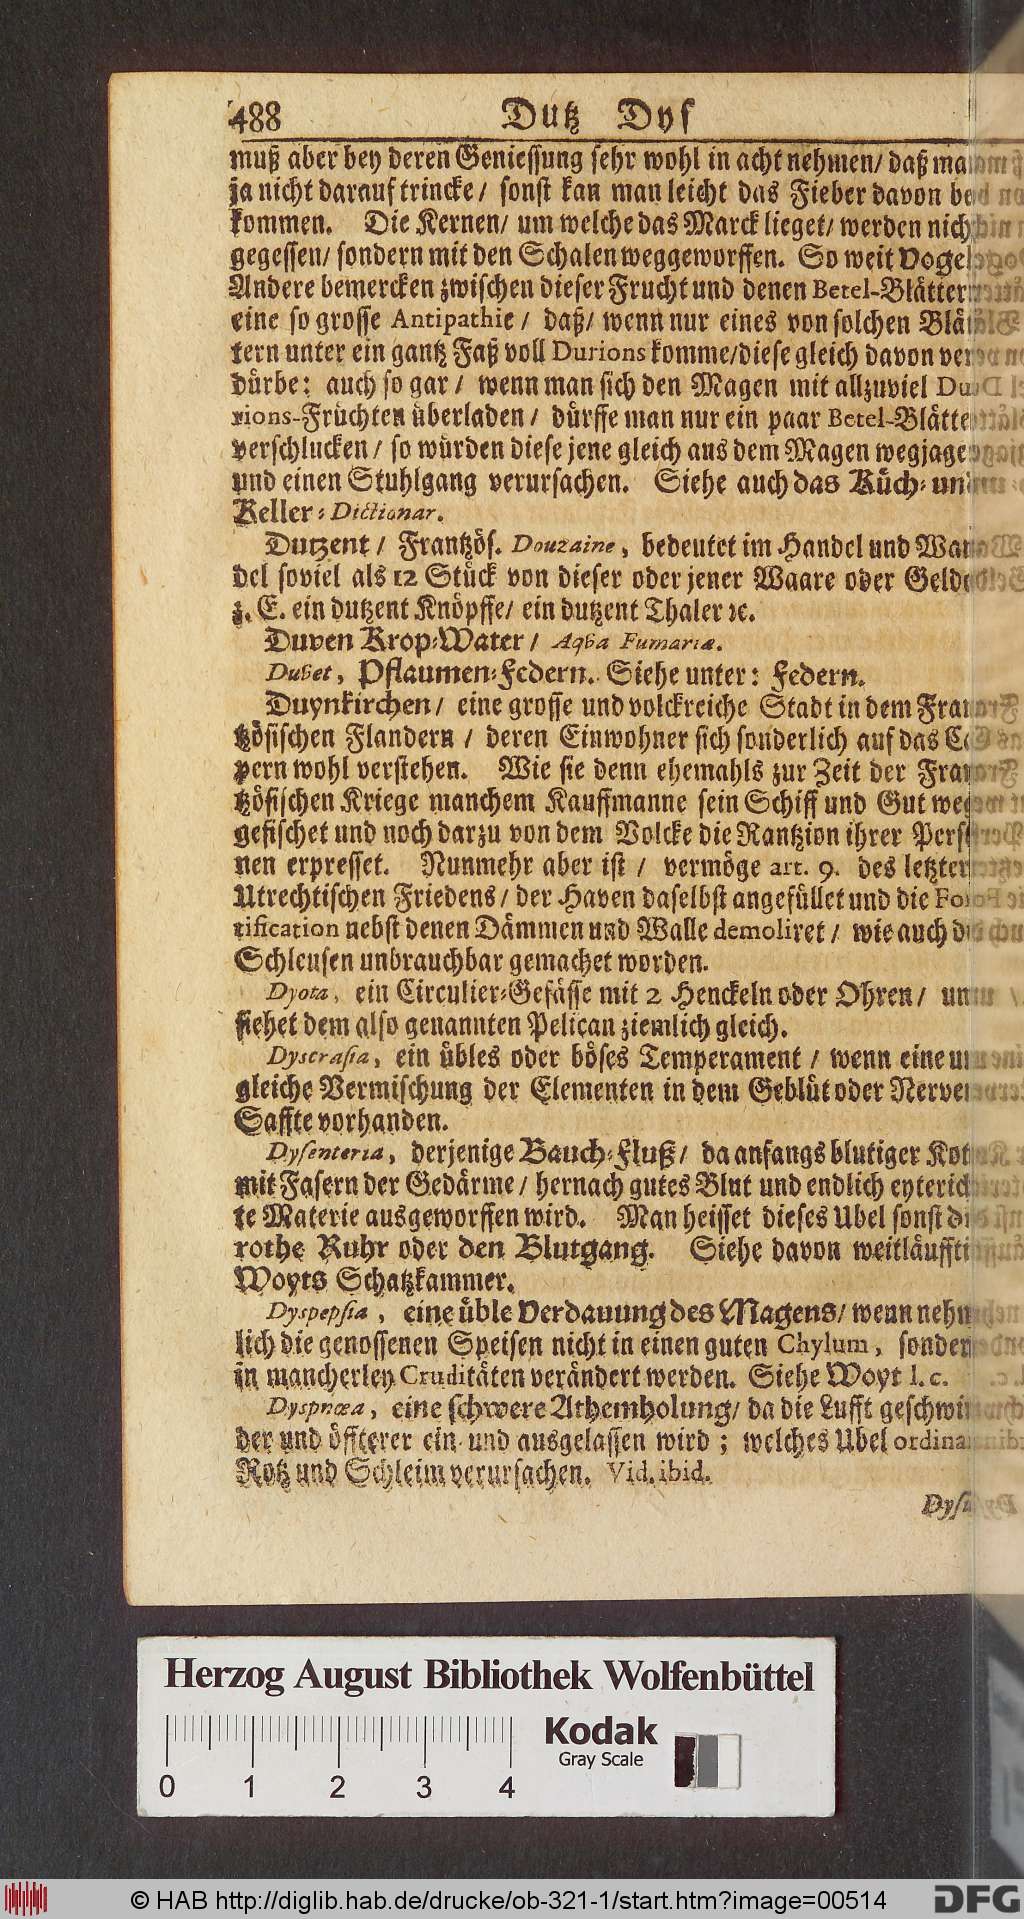 488 Dutz Dys
muß aber bey deren Geniessung sehr wohl in acht nehmen/ daß man
ja nicht darauf trincke/ sonst kan man leicht das Fieber davon be-
kommen. Die Kernen/ um welche das Marck lieget/ werden nicht
gegessen/ sondern mit den Schalen weggeworffen. So weit Vogel.
Andere bemercken zwischen dieser Frucht und denen Betel-Blättern
eine so grosse Antipathie/ daß/ wenn nur eines von solchen Blät-
tern unter ein gantz Faß voll Durions komme/ diese gleich davon ver-
dürbe: auch so gar/ wenn man sich den Magen mit allzuviel Du-
rions-Früchten überladen/ dürffe man nur ein paar Betel-Blätter
verschlucken/ so würden diese jene gleich aus dem Magen wegjagen
und einen Stuhlgang verursachen. Siehe auch das Küch- und
Keller-Dictionar.
Dutzent/ Frantzös. Douzaine, bedeutet im Handel und Wan-
del soviel als 12 Stück von dieser oder jener Waare oder Gelde/
z. E. ein dutzent Knöpffe/ ein dutzent Thaler ꝛc.
Duven Krop-Water/ Aqva Fumariæ.
Duvet, Pflaumen-Federn. Siehe unter: Federn.
Duynkirchen/ eine grosse und volckreiche Stadt in dem Fran-
tzösischen Flandern/ deren Einwohner sich sonderlich auf das Ca-
pern wohl verstehen. Wie sie denn ehemahls zur Zeit der Fran-
tzösischen Kriege manchem Kauffmanne sein Schiff und Gut weg-
gefischet und noch darzu von dem Volcke die Rantzion ihrer Perso-
nen erpresset. Nunmehr aber ist/ vermöge art. 9. des letztern
Utrechtischen Friedens/ der Haven daselbst angefüllet und die For-
tification nebst denen Dämmen und Walle demoliret/ wie auch die
Schleusen unbrauchbar gemachet worden.
Dyota, ein Circulier-Gefässe mit 2 Henckeln oder Ohren/ und
siehet dem also genannten Pelican ziemlich gleich.
Dyscrasia, ein übles oder böses Temperament/ wenn eine un-
gleiche Vermischung der Elementen in dem Geblüt oder Nerven-
Saffte vorhanden.
Dysenteria, derjenige Bauch-Fluß/ da anfangs blutiger Koth
mit Fasern der Gedärme/ hernach gutes Blut und endlich eyterich-
te Materie ausgeworffen wird. Man heisset dieses Ubel sonst die
rothe Ruhr oder den Blutgang. Siehe davon weitläufftig
Woyts Schatzkammer.
Dyspepsia, eine üble Verdauung des Magens/ wenn nehm-
lich die genossenen Speisen nicht in einen guten Chylum, sondern
in mancherley Cruditäten verändert werden. Siehe Woyt l. c.
Dyspnœa, eine schwere Athemholung/ da die Lufft geschwin-
der und öffterer ein- und ausgelassen wird; welches Ubel
Rotz und Schleim verursachen. Vid. ibid.
Herzog August Bibliothek Wolfenbüttel
Kodak
Gray Scale
0 1 2 3 4
© HAB http://diglib.hab.de/drucke/ob-321-1/start.htm?image=00514
DFG